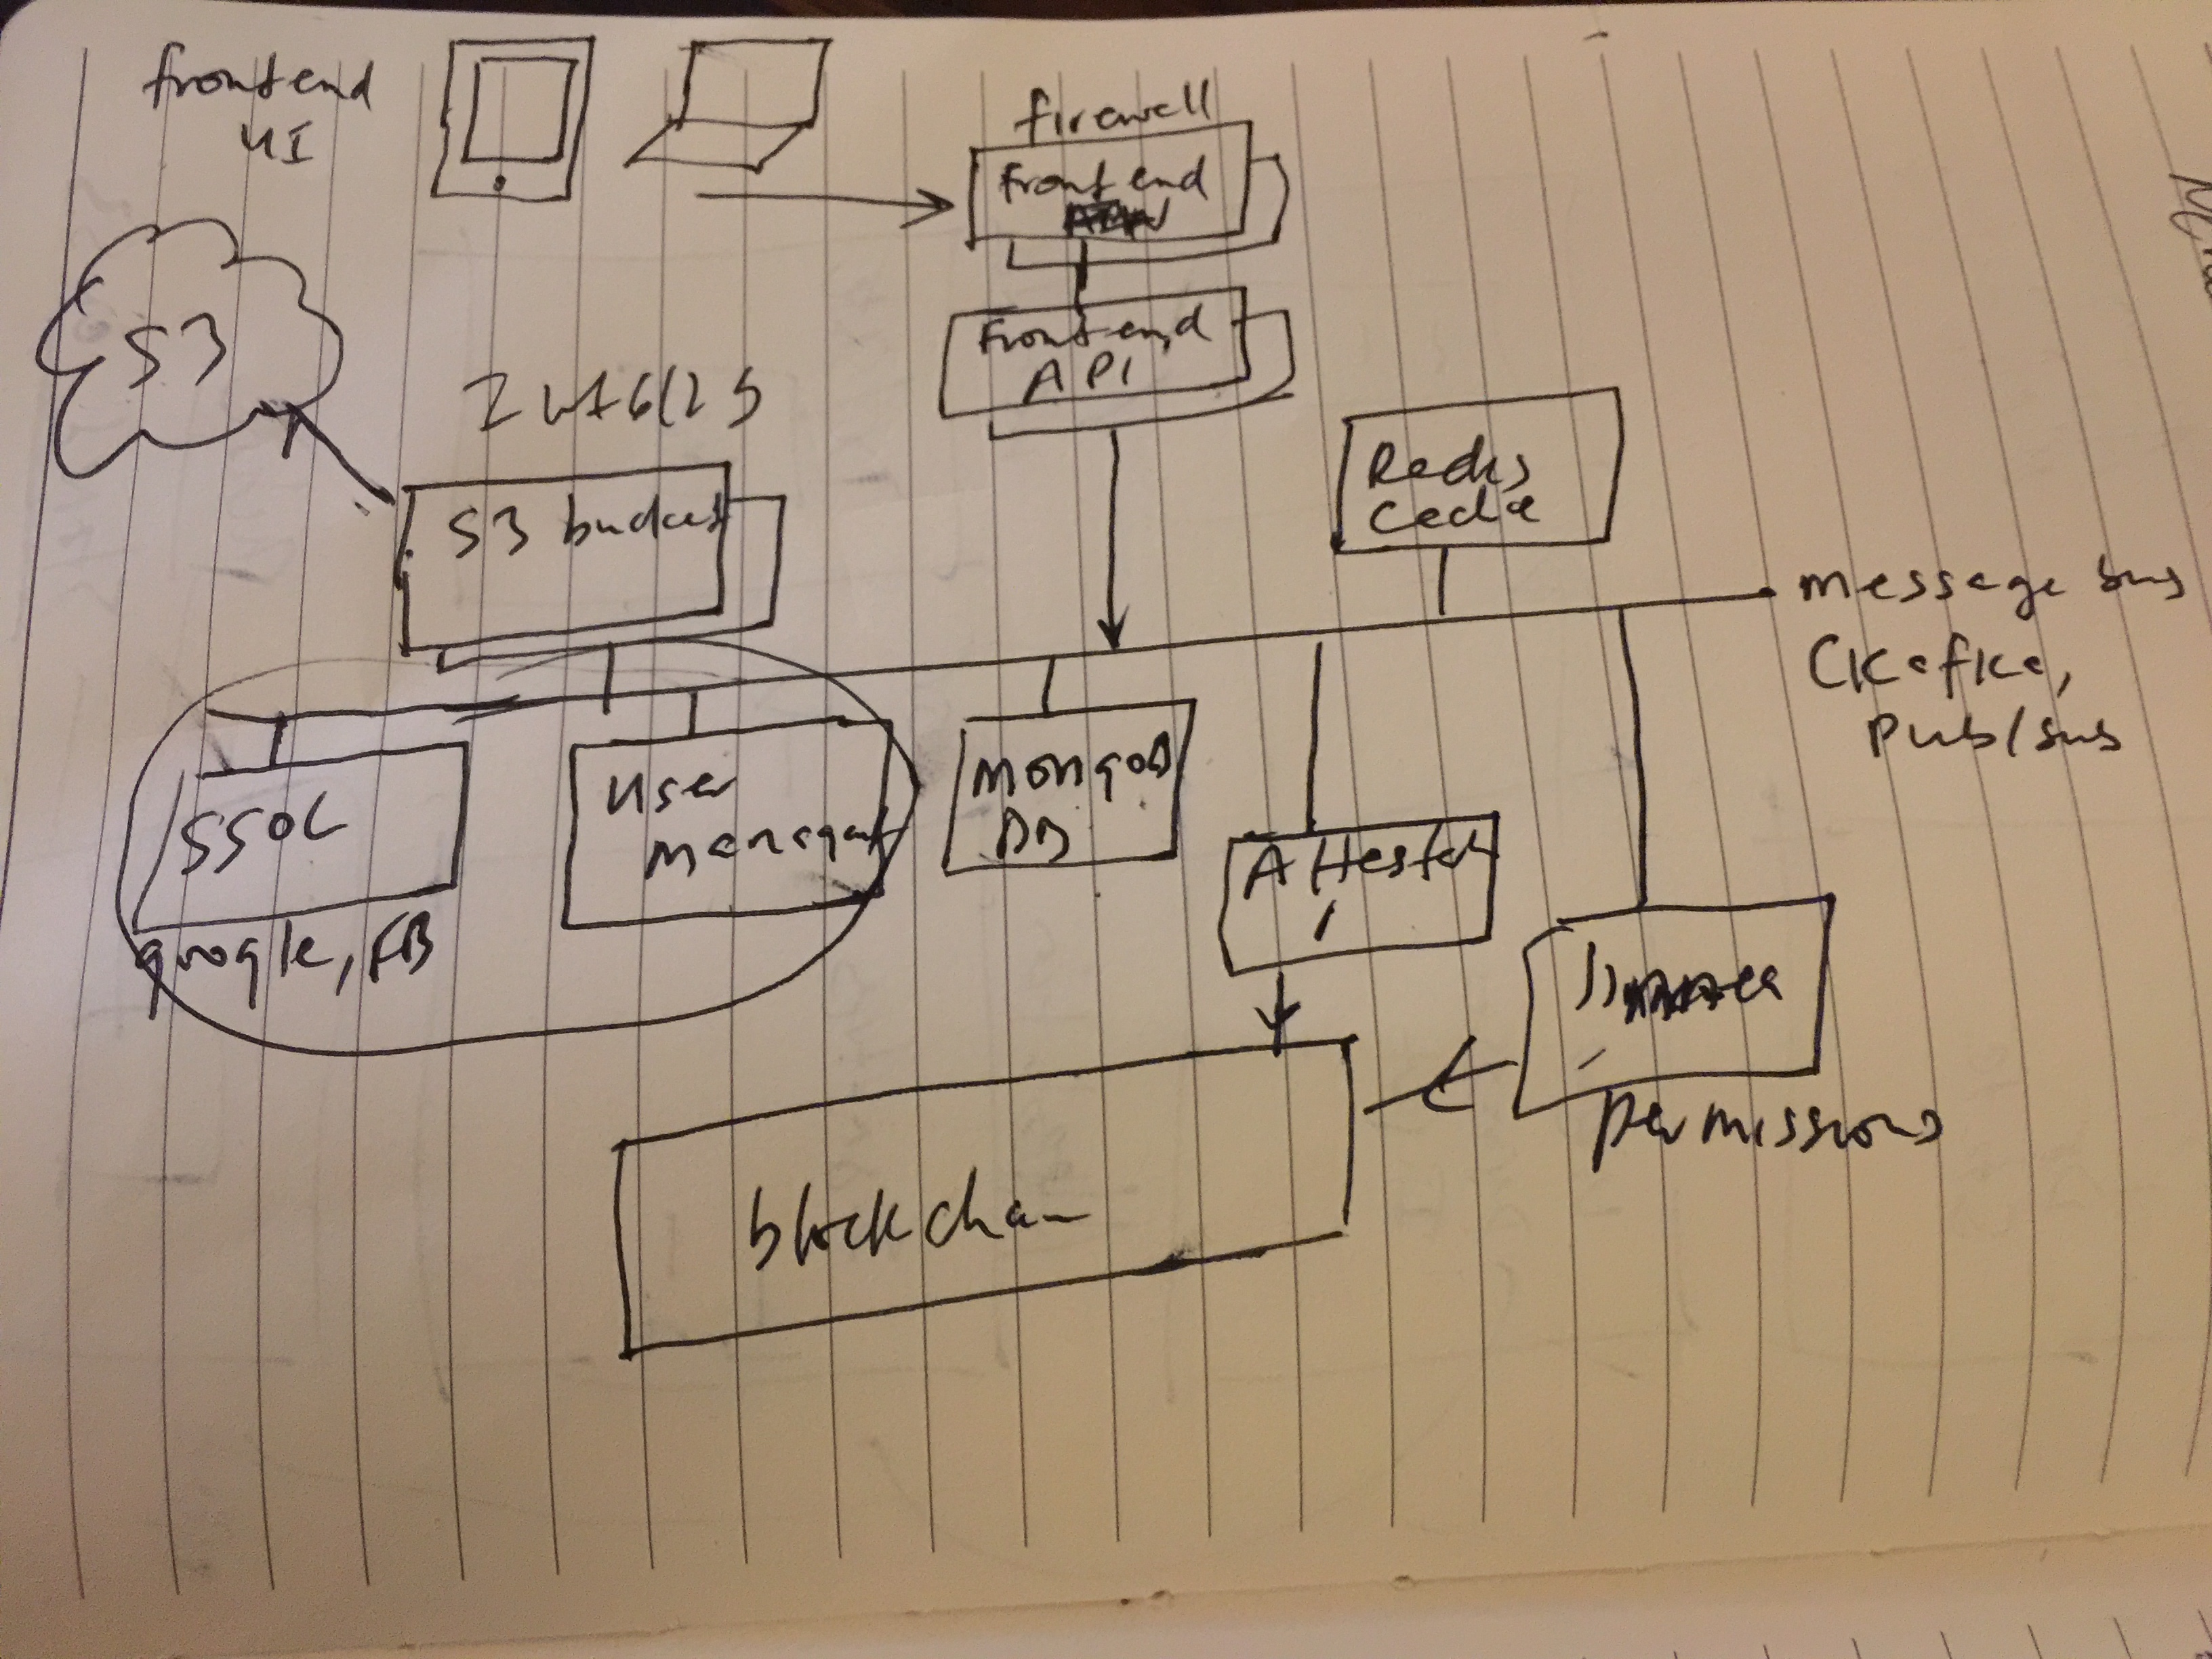 frontend
UI
firewall
frontend
frontend
API
S3
S3 bucket
Redis
Cache
message bus
(Kafka,
Pub/sub
SSOC
google, FB
user
managent
MongoDB
DB
permissions
blockchain